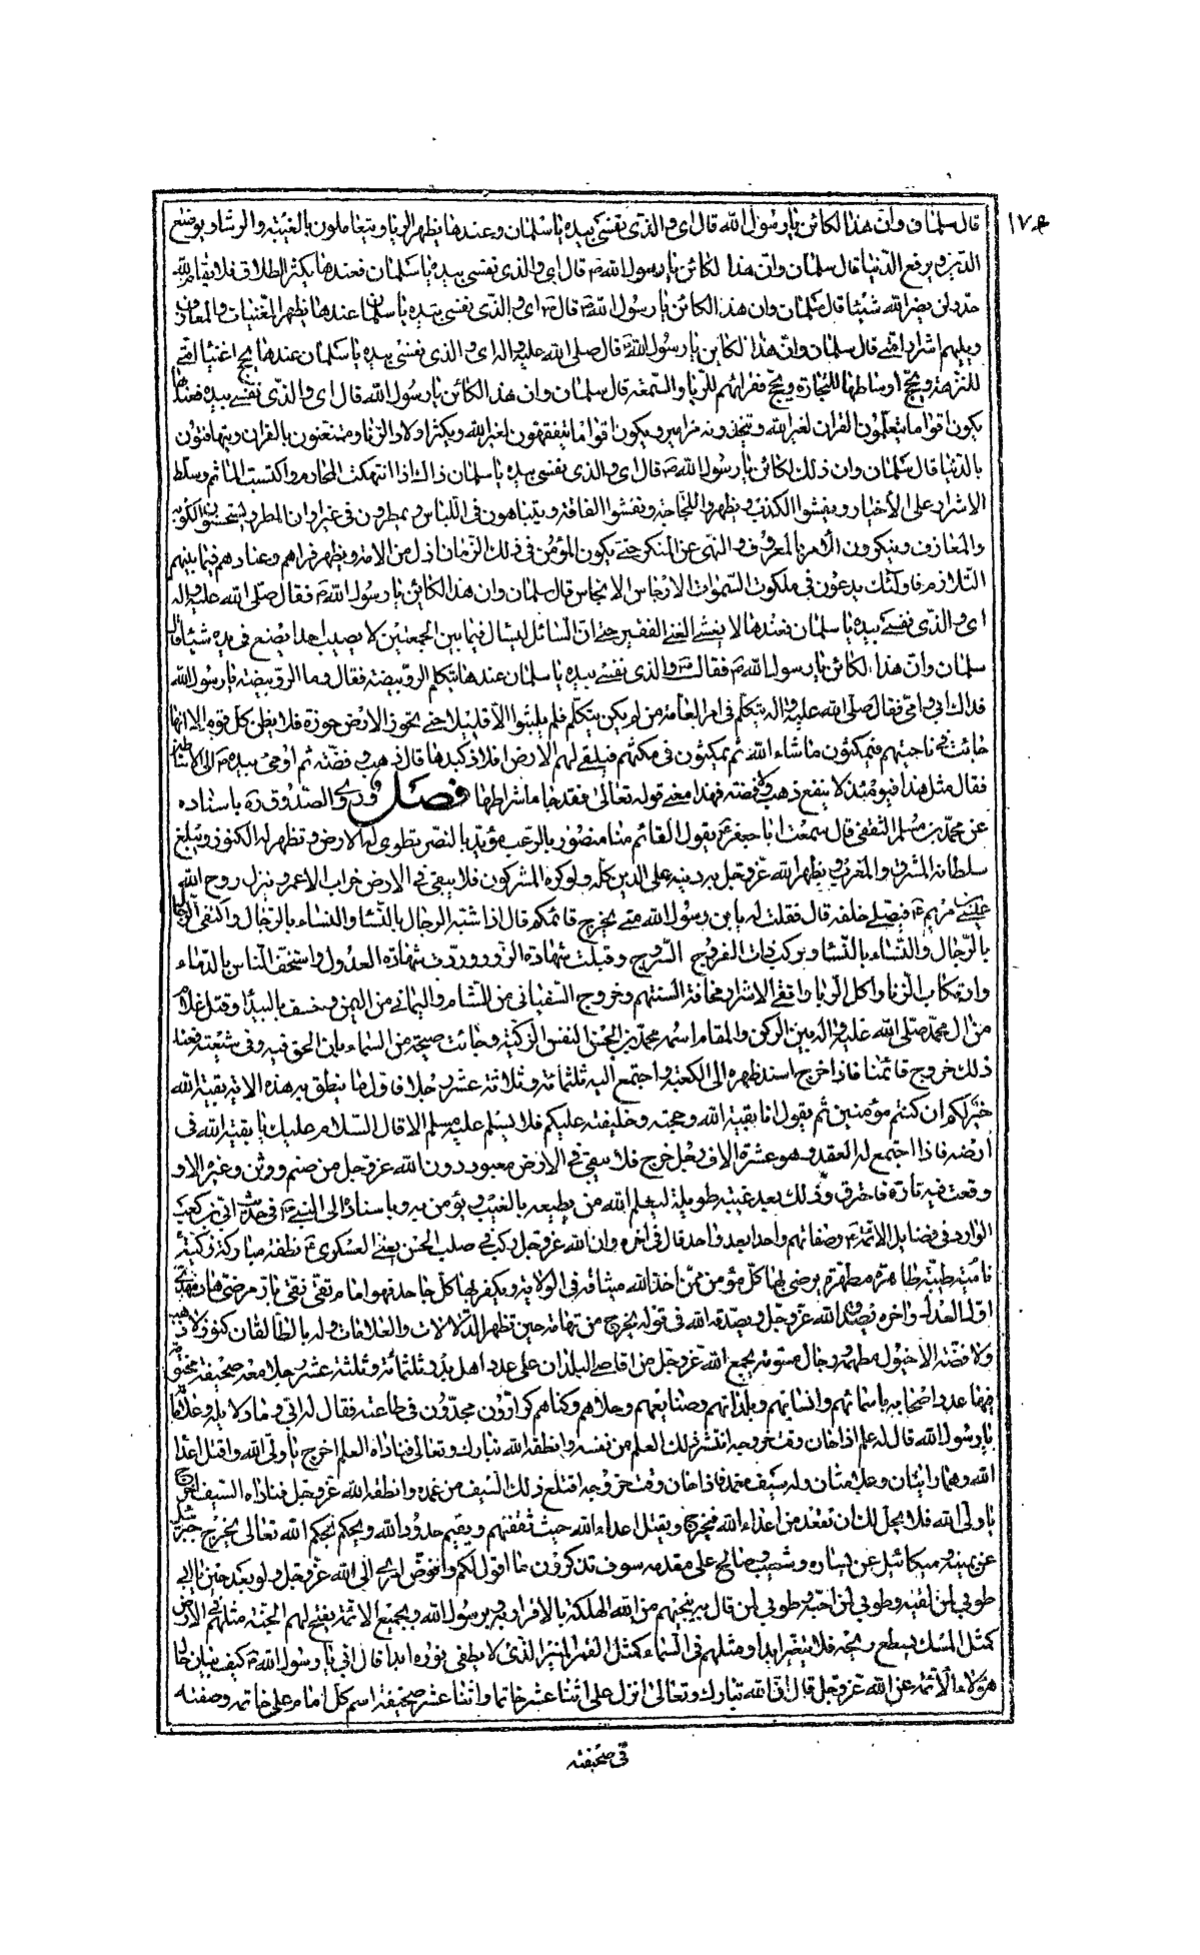 ١٧٤
قال سلمان وان هذا لكائن يا رسول الله قال اى والذى نفسى بيده يا سلمان وعندها يظهر الربا ويتعاملون بالغيبة والرشا ويوضع
الدين ويرفع الدنيا قال سلمان وان هذا لكائن يا رسول الله ص قال اى والذى نفسى بيده يا سلمان فعندها يكثر الطلاق فلا يقام لله
حد ولن يضر الله شيئا قال سلمان وان هذا لكائن يا رسول الله ص قال ص اى والذى نفسى بيده يا سلمان عندها يظهر المغنيات والمعازف
ويليهم اشرار امتى قال سلمان وان هذا لكائن يا رسول الله ص قال صلى الله عليه واله اى والذى نفسى بيده يا سلمان عندها يحج اغنيا امتى
للنزهة ويحج اوساطها للتجارة ويحج فقرائهم للريا والسمعة قال سلمان وان هذا لكائن يا رسول الله قال اى والذى نفسى بيده فعندها
يكون اقواما يتعلمون القران لغير الله ويتخذونه مزامير ويكون اقواما يتفقهون لغير الله ويكثر اولاد الزنا ويتغنون بالقران ويتهافتون
بالدنيا قال سلمان وان ذلك لكائن يا رسول الله ص قال اى والذى نفسى بيده يا سلمان ذاك اذا انتهكت المحارم واكتسبت المآثم وسلط
الاشرار على الأخيار ويفشوا الكذب ويظهر اللجاجة وتفشوا الفاقة ويتباهون فى اللباس ويمطرون فى غير اوان المطر ويستحسنون الكوبة
والمعازف وينكرون الامر بالمعروف والنهى عن المنكر حتى يكون المؤمن فى ذلك الزمان اذل من الامة ويظهر قراهم وعبادهم فيما بينهم
التلازم فاولئك يدعون فى ملكوت السموات الارجاس الانجاس قال سلمان وان هذا لكائن يا رسول الله ص فقال صلى الله عليه واله
اى والذى نفسى بيده يا سلمان فعندها لا يخشى الغنى الفقير حتى ان السائل ليسال فيما بين الجمعتين لا يصيب احدا يضع فى يده شيئا قال
سلمان وان هذا لكائن يا رسول الله ص فقال اى والذى نفسى بيده يا سلمان عندها يتكلم الرويبضة فقال وما الرويبضة يا رسول الله
فداك ابى وامى فقال صلى الله عليه واله يتكلم فى امر العامة من لم يكن يتكلم فلم يلبثوا الا قليلا حتى تخور الارض خورة فلا يظن كل قوم الا انها
خارت فى ناحيتهم فيمكثون ما شاء الله ثم يمكثون فى مكثهم فيلقى لهم الارض افلاذ كبدها قال ذهب وفضة ثم اومى بيده ص الى الاساطين
فقال مثل هذا فيومئذ لا ينفع ذهب ولا فضة فهذا معنى قوله تعالى فقد جا اشراطها فصل وروى الصدوق ره باسناده
عن محمد بن مسلم الثقفى قال سمعت ابا جعفر ع يقول القائم منا منصور بالرعب مؤيد بالنصر تطوى له الارض وتظهر له الكنوز ويبلغ
سلطانه المشرق والمغرب ويظهر الله عز وجل به دينه على الدين كله ولو كره المشركون فلا يبقى فى الارض خراب الا عمر وينزل روح الله
عيسى بن مريم ع فيصلى خلفه قال فقلت له يا بن رسول الله متى يخرج قائمكم قال اذا اشتبه الرجال بالنسا والنساء بالرجال واكتفى الرجال
بالرجال والنساء بالنسا وركب ذات الفروج السروج وقبلت شهادة الزور وردت شهادة العدول واستخف الناس بالدماء
وارتكاب الزنا واكل الربا واتقى الاشرار مخافة السنتهم وخروج السفيانى من الشام واليمانى من اليمن وخسف بالبيدا وقتل غلام
من ال محمد صلى الله عليه واله بين الركن والمقام اسمه محمد بن الحسن النفس الزكية وجائت صيحة من السماء بان الحق فيه وفى شيعته فعند
ذلك خروج قائمنا فاذا خرج اسند ظهره الى الكعبة واجتمع اليه ثلثمائة وثلاثة عشر رجلا فاول ما ينطق به هذه الاية بقية الله
خير لكم ان كنتم مؤمنين ثم يقول انا بقية الله وحجته وخليفته عليكم فلا يسلم عليه مسلم الا قال السلام عليك يا بقية الله فى
ارضه فاذا اجتمع له العقد وهو عشرة الاف رجل خرج فلا يبقى فى الارض معبود دون الله عز وجل من صنم ووثن وغيره الا و
وقعت فيه نار فاحترق وذلك بعد غيبة طويلة ليعلم الله من يطيعه بالغيب ويؤمن به وباسناده الى النبى ص فى حديث ابى بن كعب
الوارد فى فضايل الائمة ع وصفاتهم واحدا بعد واحد قال فى اخره وان الله عز وجل ركب فى صلب الحسن يعنى العسكرى ع نطفة مباركة زكية
نامية طيبة طاهرة مطهرة يرضى بها كل مؤمن ممن اخذ الله ميثاقه فى الولاية ويكفر بها كل جاحد فهو امام تقى نقى بار مرضى هاد مهدى
اوله العدل واخره يصدق الله عز وجل ويصدقه الله فى قوله يخرج من تهامة حين تظهر الدلالات والعلامات وله بالطالقان كنوز لا ذهب
ولا فضة الا خيول مطهمة ورجال مسومة يجمع الله عز وجل من اقاصى البلدان على عدد اهل بدر ثلثمائة وثلثة عشر رجلا معه صحيفة مختومة
فيها عدد اصحابه باسمائهم وانسابهم وبلدانهم وصنايعهم وحلاهم وكناهم كرارون مجدون فى طاعته فقال له ابى وما دلايله وعلاماته
يا رسول الله قال له علم اذا حان وقت خروجه انتشر ذلك العلم من نفسه وانطقه الله تبارك وتعالى فناداه العلم اخرج يا ولى الله واقتل اعدا
الله وهما رايتان وعلامتان وله سيف مغمد فاذا حان وقت خروجه اقتلع ذلك السيف من غمده وانطقه الله عز وجل فناداه السيف اخرج
يا ولى الله فلا يحل لك ان تقعد من اعداء الله فيخرج ويقتل اعداء الله حيث ثقفهم ويقيم حدود الله ويحكم بحكم الله تعالى يخرج جبرئيل
عن يمينه وميكائيل عن يساره وشعيب وصالح على مقدمه سوف تذكرون ما اقول لكم وافوض امرى الى الله عز وجل ولو بعد حين يا ابى
طوبى لمن لقيه وطوبى لمن احبه وطوبى لمن قال به ينجيهم من الله الهلكة بالاقرار به وبرسول الله وبجميع الائمة يفتح لهم الجنة مثلهم فى الارض
كمثل المسك يسطع ريحه فلا يتغير ابدا ومثلهم فى السماء كمثل القمر المنير الذى لا يطفى نوره ابدا قال ابى يا رسول الله ص كيف بيان حال
هؤلاء الائمة عن الله عز وجل قال ان الله تبارك وتعالى انزل على اثنا عشر خاتما واثنا عشر صحيفة اسم كل امام على خاتمه وصفته
فى صحيفته